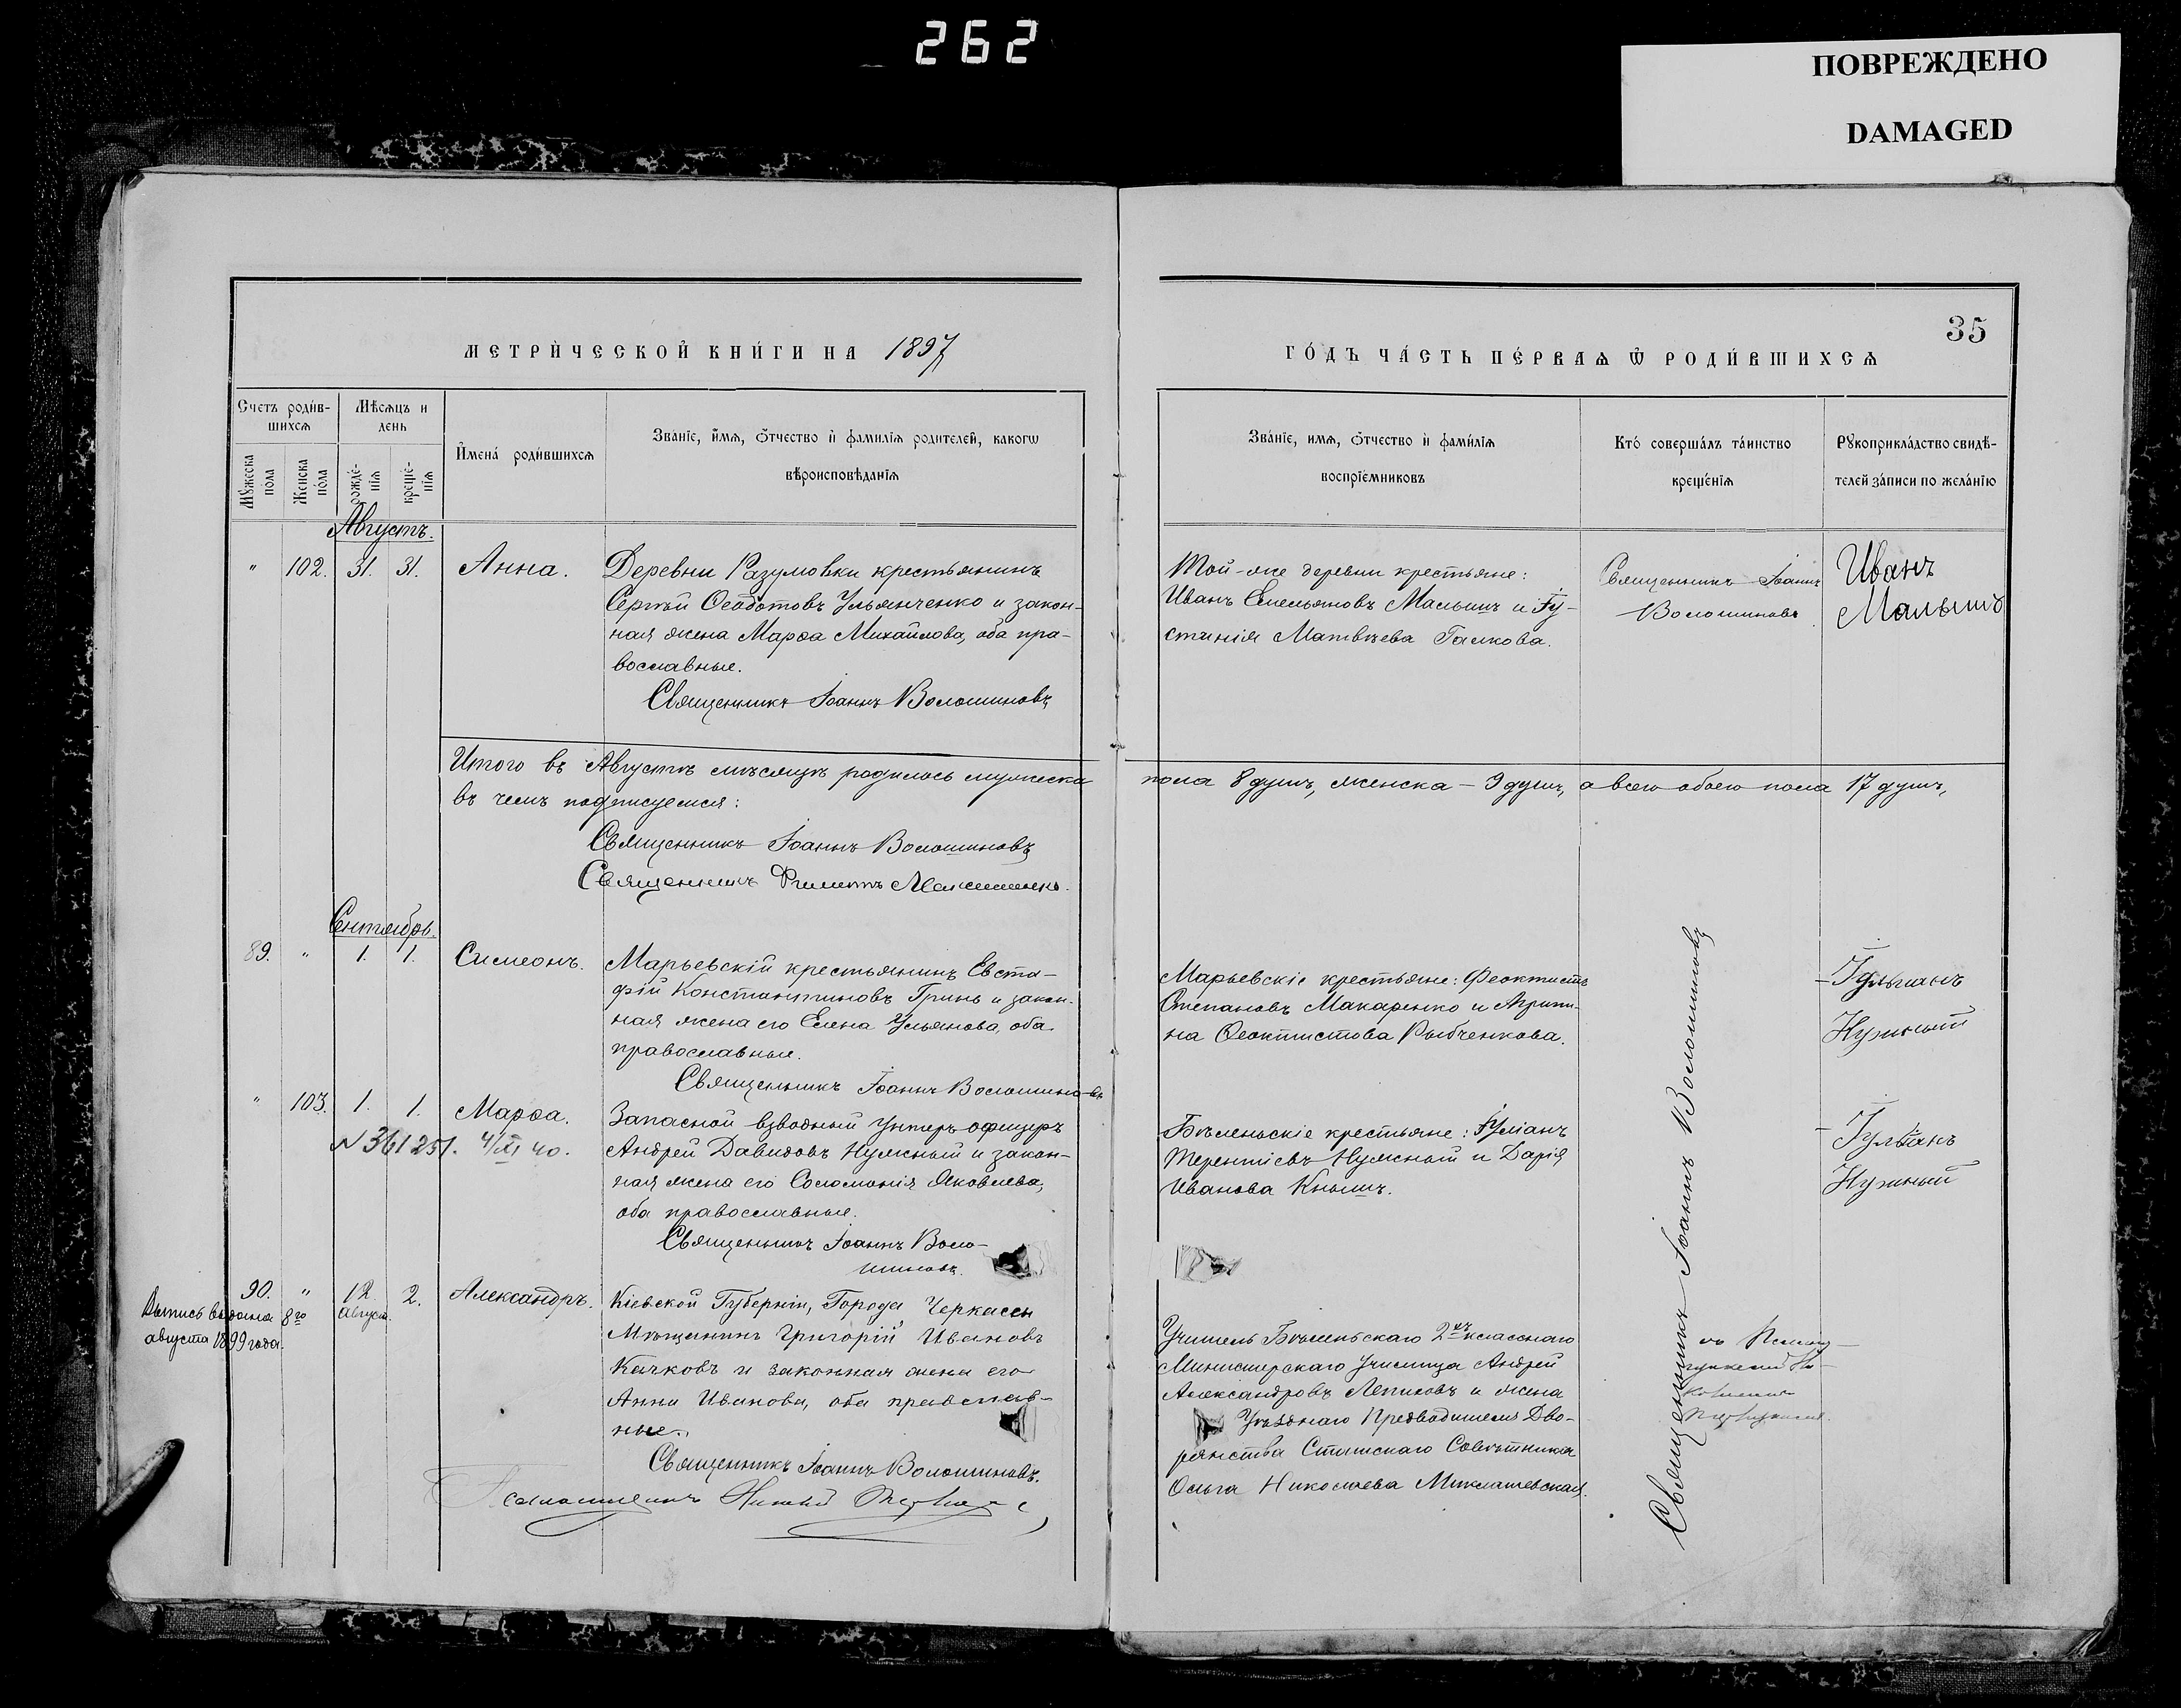 262
ПОВРЕЖДЕНО
DAMAGED
МЕТРИ́ЧЕСКОЙ КНИ́ГИ НА 1897
ГО́ДЪ ЧА́СТЬ ПЕ́РВАѦ Ѿ РОДИ́ВШИХСѦ
35
Счетъ роди́в-
шихсѧ
Мѣсѧцъ и
день
Мꙋ́жеска по́ла
Женска по́ла
рожде́-
нїѧ
креще́-
нїѧ
И҆мена́ роди́вшихсѧ
Зва́нїе, и҆́мѧ, ѻ҆́тчество и҆ фами́лїѧ родителей, какогѡ
вѣроисповѣ́данїѧ
Зва́нїе, имѧ, ѻ҆́тчество и҆ фами́лїѧ
воспрїе́мниковъ
Кто́ соверша́лъ та́инство
креще́нїѧ
Рꙋкоприкла́дство свидѣ́-
телей за́писи по жела́нїю
Августъ.
" 102. 31. 31. Анна.
Деревни Разумовки крестьянинъ
Сергѣй Ѳеодотовъ Ульянченко и закон-
ная жена Марѳа Михайлова, оба пра-
вославные.
Священникъ Іоаннъ Волошиновъ
Той-же деревни крестьяне:
Иванъ Емельяновъ Малышъ и Іу-
стинія Матвѣева Галкова.
Священникъ Іоаннъ
Волошиновъ
Иванъ
Малышъ
Итого въ Августѣ мѣсяцѣ родилось мужеска пола 8 душъ, женска – 9 душъ, а всего обоего пола 17 душъ,
въ чемъ подписуемся:
Священникъ Іоаннъ Волошиновъ
Священникъ
Сентябрь.
89. " 1. 1. Симеонъ.
Марьевскій крестьянинъ Евста-
фій Константиновъ Гринь и закон-
ная жена его Елена Ульянова, оба
православные.
Священникъ Іоаннъ Волошиновъ
Марьевскіе крестьяне: Феоктистъ
Степановъ Макаренко и Агрипи-
на Ѳеоктистова Рыбченкова.
Гульянъ
Нужный
" 103. 1. 1. Марѳа.
N 361251. 4/XI 40.
Запасной взводный унтеръ офицеръ
Андрей Давидовъ Нужный и закон-
ная жена его Соломонія Яковлева,
оба православные.
Священникъ Іоаннъ Воло-
шиновъ.
Бѣленьскіе крестьяне: Іуліанъ
Терентіевъ Нужный и Дарія
Иванова Кнышъ.
Гульянъ
Нужный
Священникъ Іоаннъ Волошиновъ
90. " 12. 2. Александръ.
Август.
Выпись выдана 8го
августа 1899 года.
Кіевской Губерніи, Города Черкассы
Мѣщанинъ Григорій Ивановъ
Качковъ и законная жена его
Анна Иванова, оба православ-
ные.
Священникъ Іоаннъ Волошиновъ.
Учитель Бѣленьскаго 2хъ класснаго
Министерскаго училища Андрей
Александровъ Лепиховъ и жена
Уѣзднаго Предводителя Дво-
рянства Статскаго Совѣтника
Ольга Николаева Миклашевская.